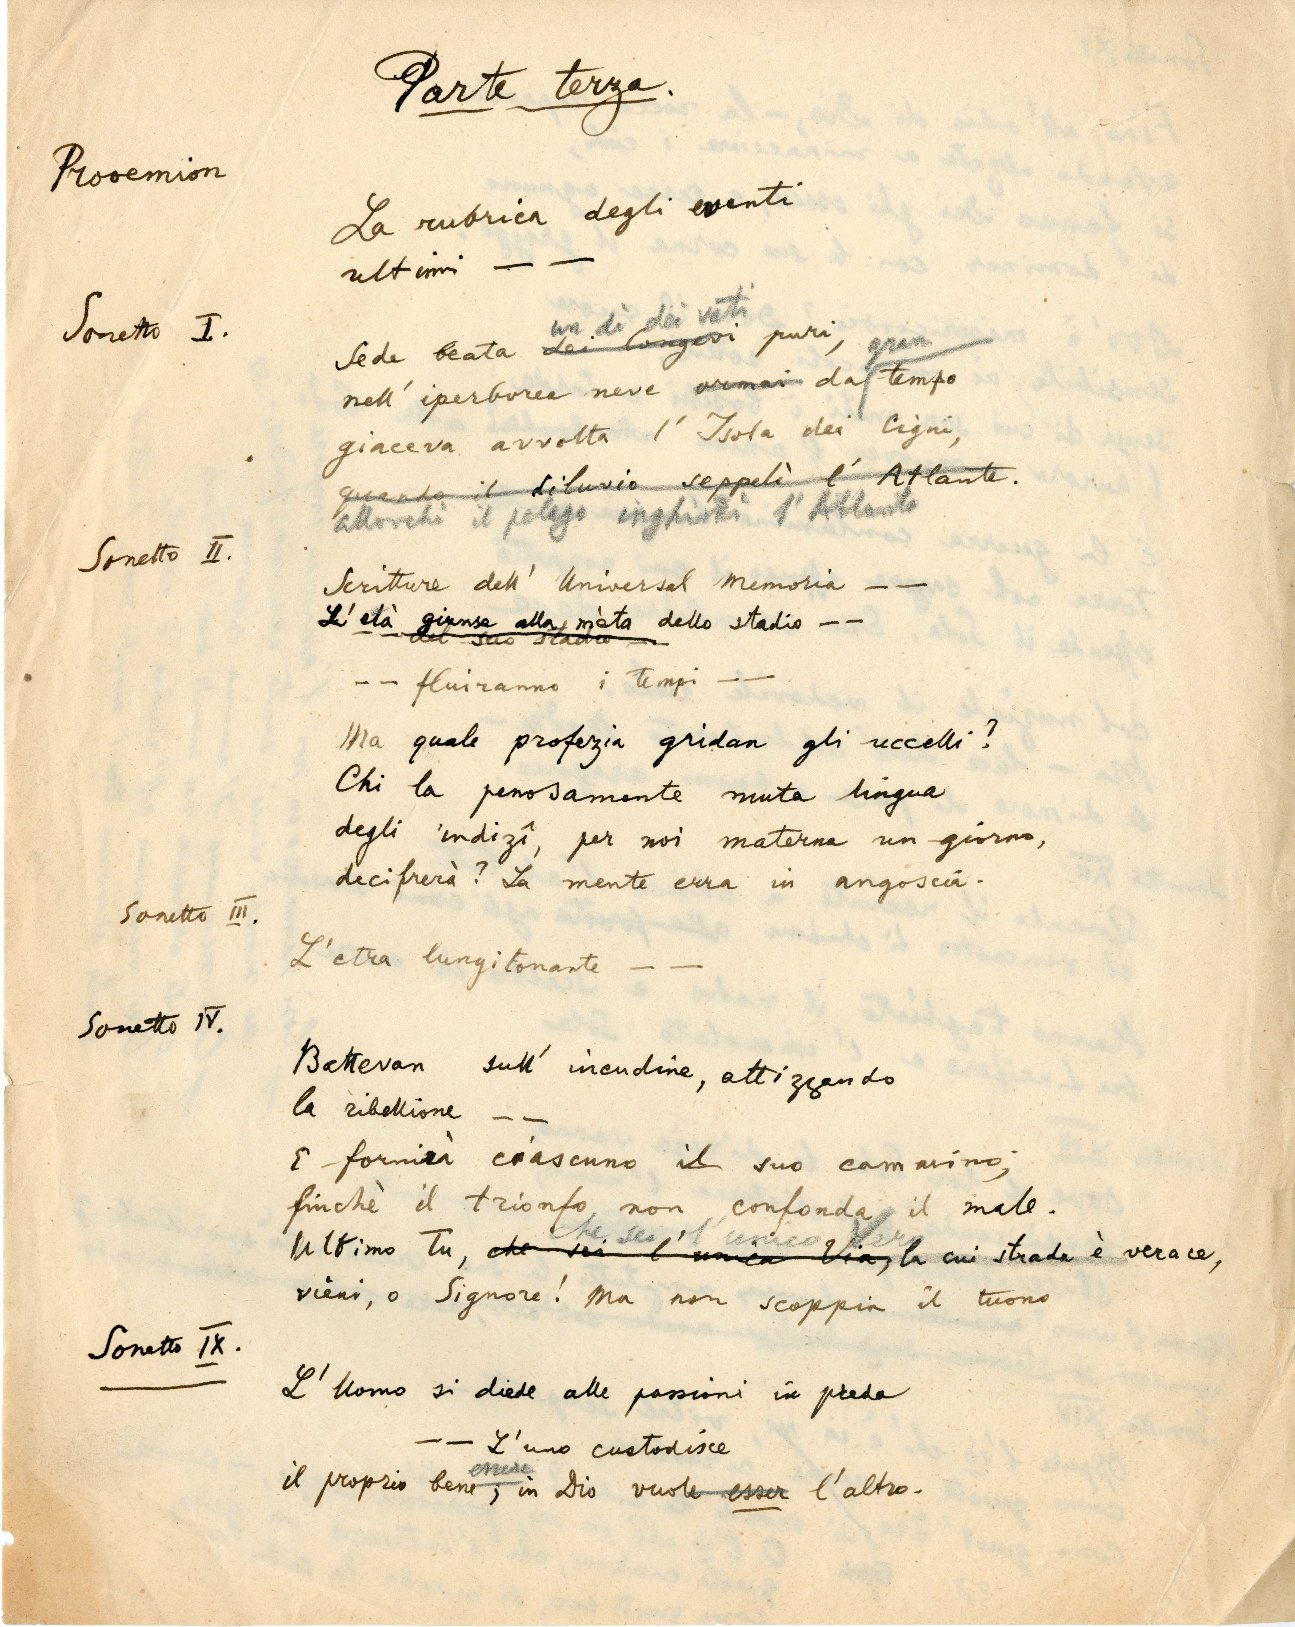 Parte terza.
Prooemion
La rubrica degli eventi
ultimi — —
Sonetto I.
un dì dei vati
Sede beata dei longevi puri,
gran
nell' iperborea neve ormai da tempo
giaceva avvolta l' Isola dei Cigni,
quando il diluvio seppelì l' Atlante.
allorchè il pelago inghiottì l' Atlante
Sonetto II.
Scritture dell' Universal Memoria — —
L' età giunse alla mèta dello stadio — —
del suo stadio —
— — fluiranno i tempi — —
Ma quale profezia gridan gli uccelli?
Chi la penosamente muta lingua
degli indizî, per noi materna un giorno,
decifrerà? La mente erra in angoscia.
Sonetto III.
L'etra lungitonante — —
Sonetto IV.
Battevan sull' incudine, attizzando
la ribellione — —
E fornirà ciascuno il suo cammino;
finchè il trionfo non confonda il male.
che sei l'unico Vero
Ultimo Tu, che sei l' unica Via, la cui strada è verace,
vieni, o Signore! Ma non scoppia il tuono
Sonetto IX.
L' Uomo si diede alle passioni in preda
— — L'uno custodisce
essere
il proprio bene; in Dio vuole esser l'altro.